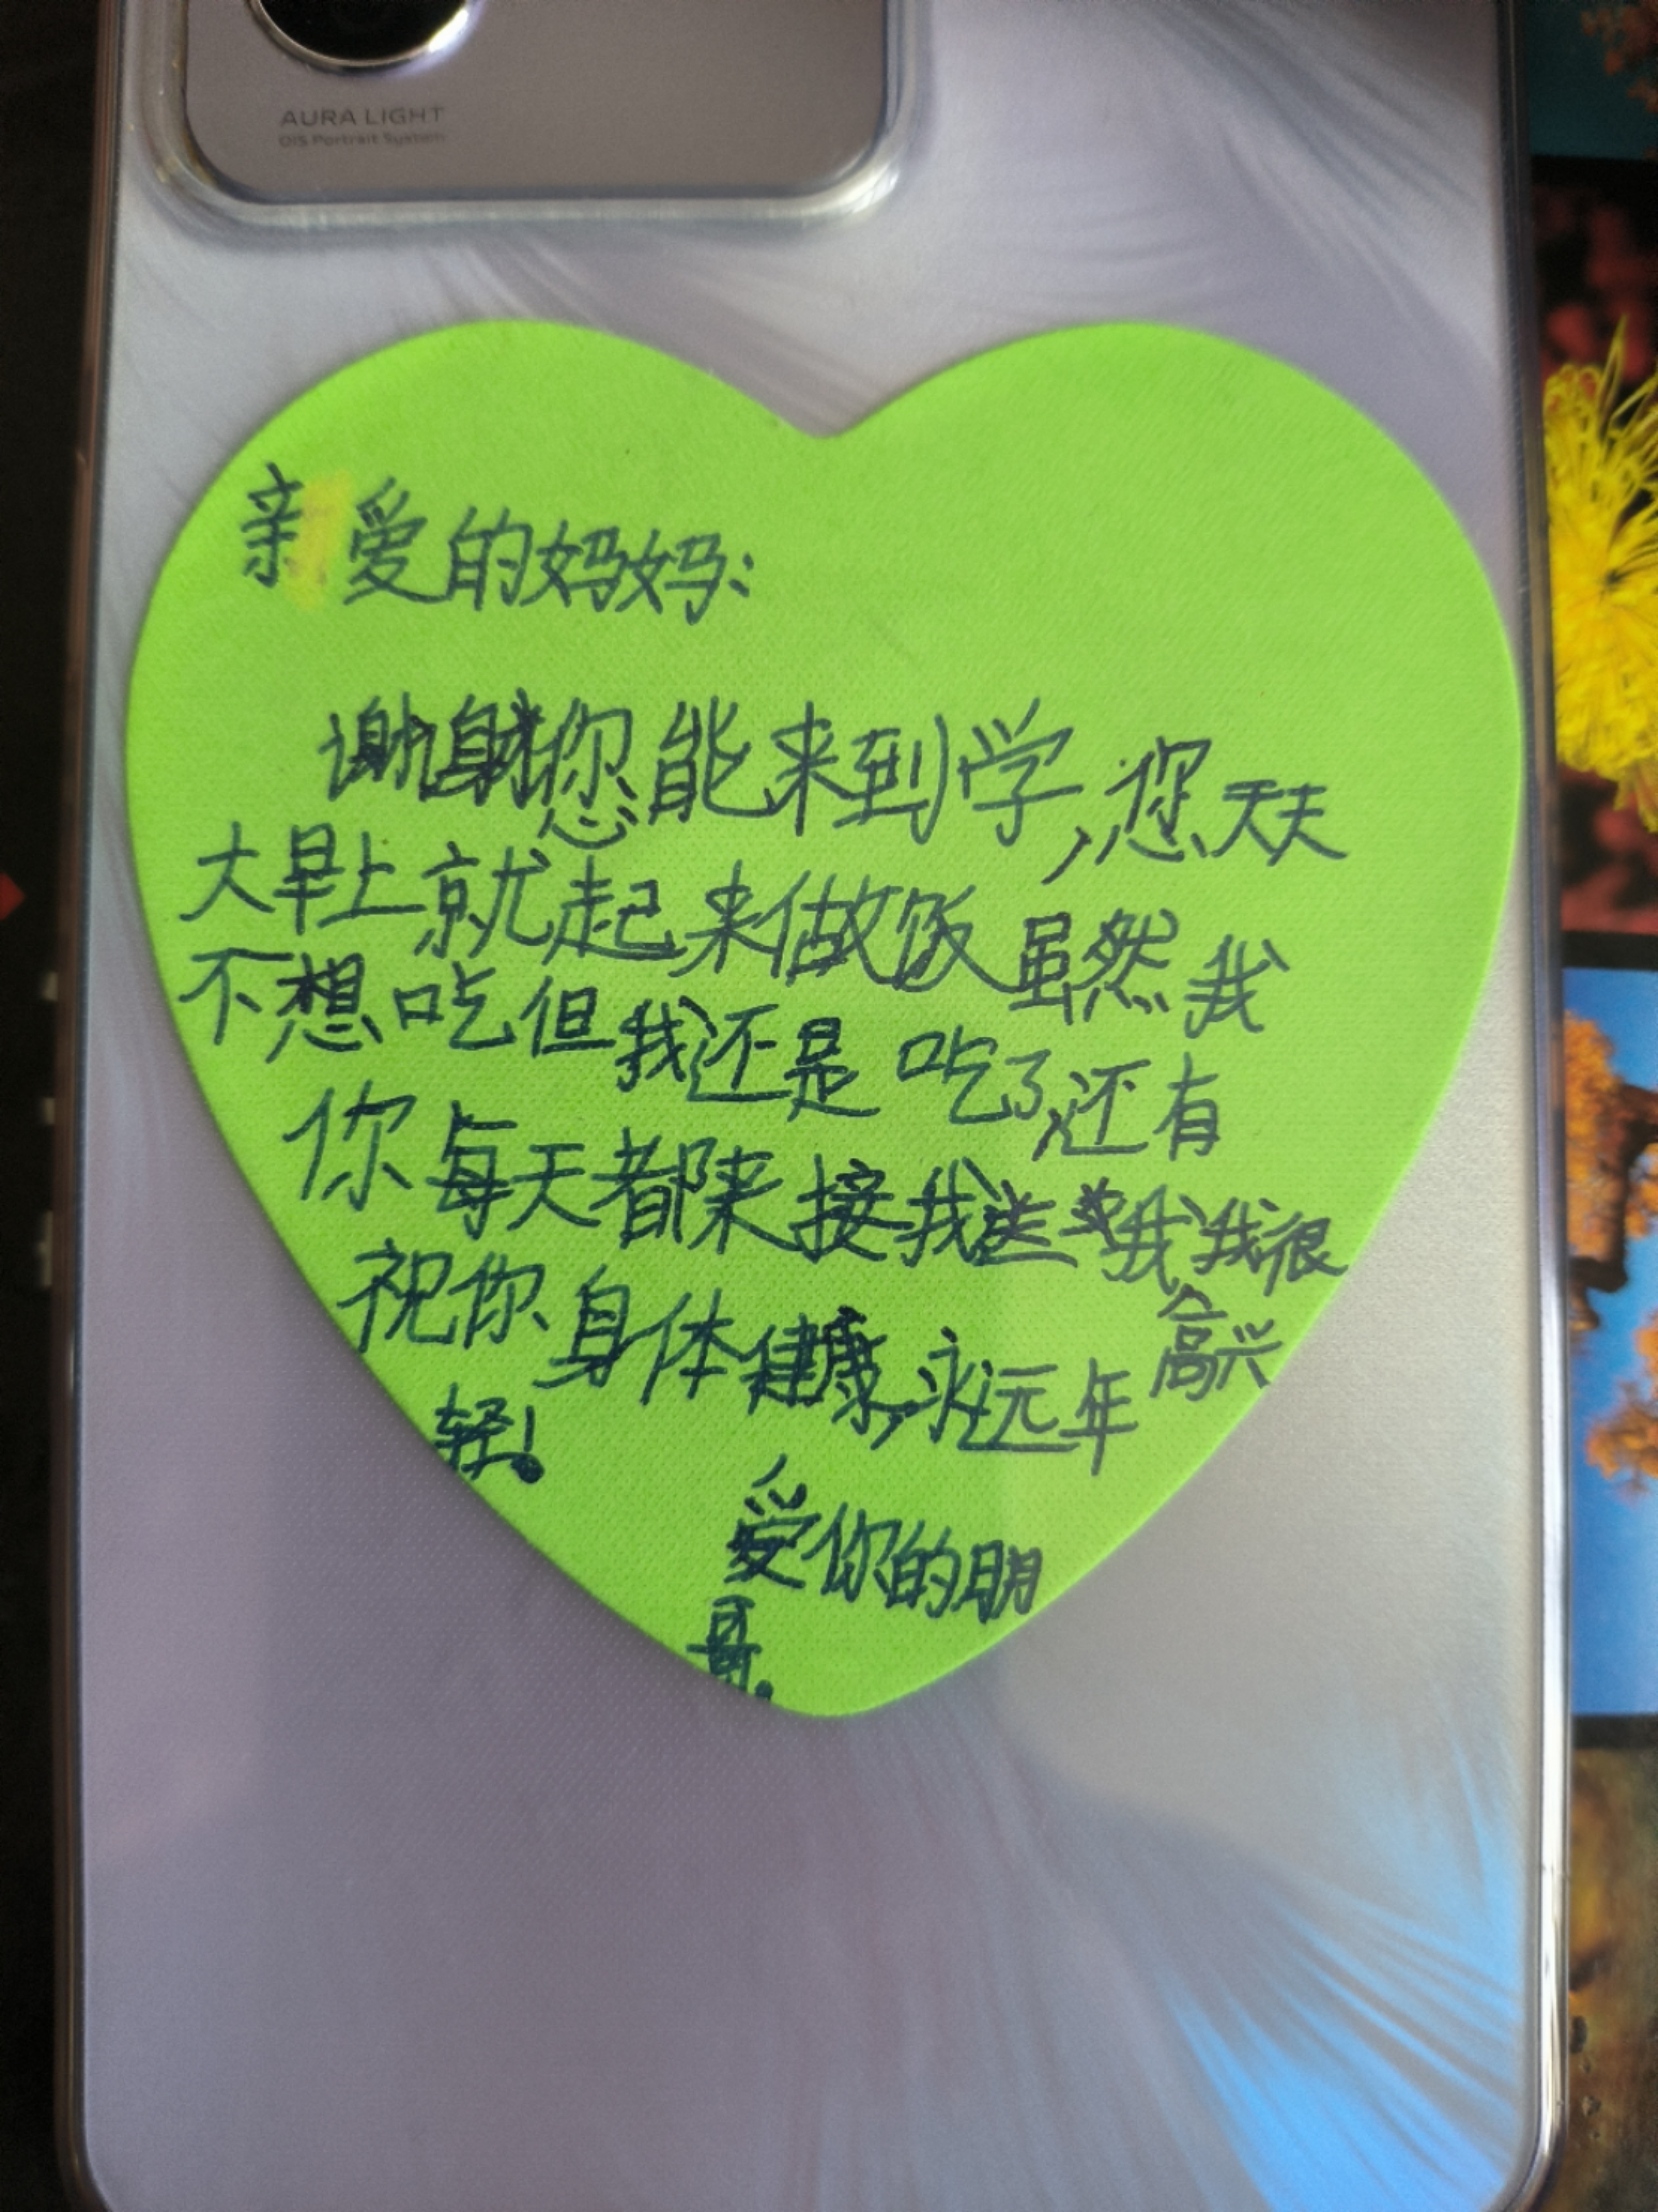 AURA LIGHT
OIS Portrait System
亲爱的妈妈:
谢谢您能来到学,您天天
大早上就起来做饭虽然我
不想吃但我还是吃了,还有
你每天都来接我送我我很
高兴
祝你身体健康,永远年
轻!
爱你的朋
哥.